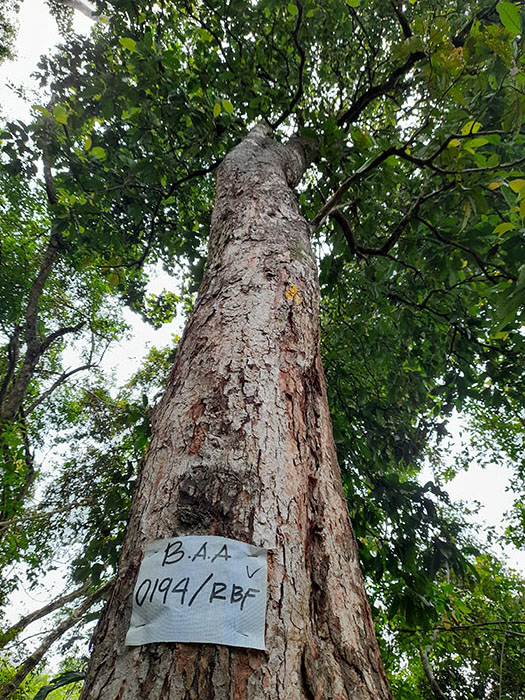 B.A.A
0194/RBF